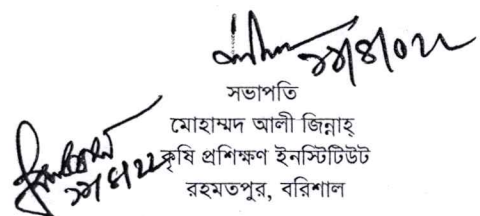 সভাপতি
মোহাম্মদ আলী জিন্নাহ্
কৃষি প্রশিক্ষণ ইনস্টিটিউট
রহমতপুর, বরিশাল